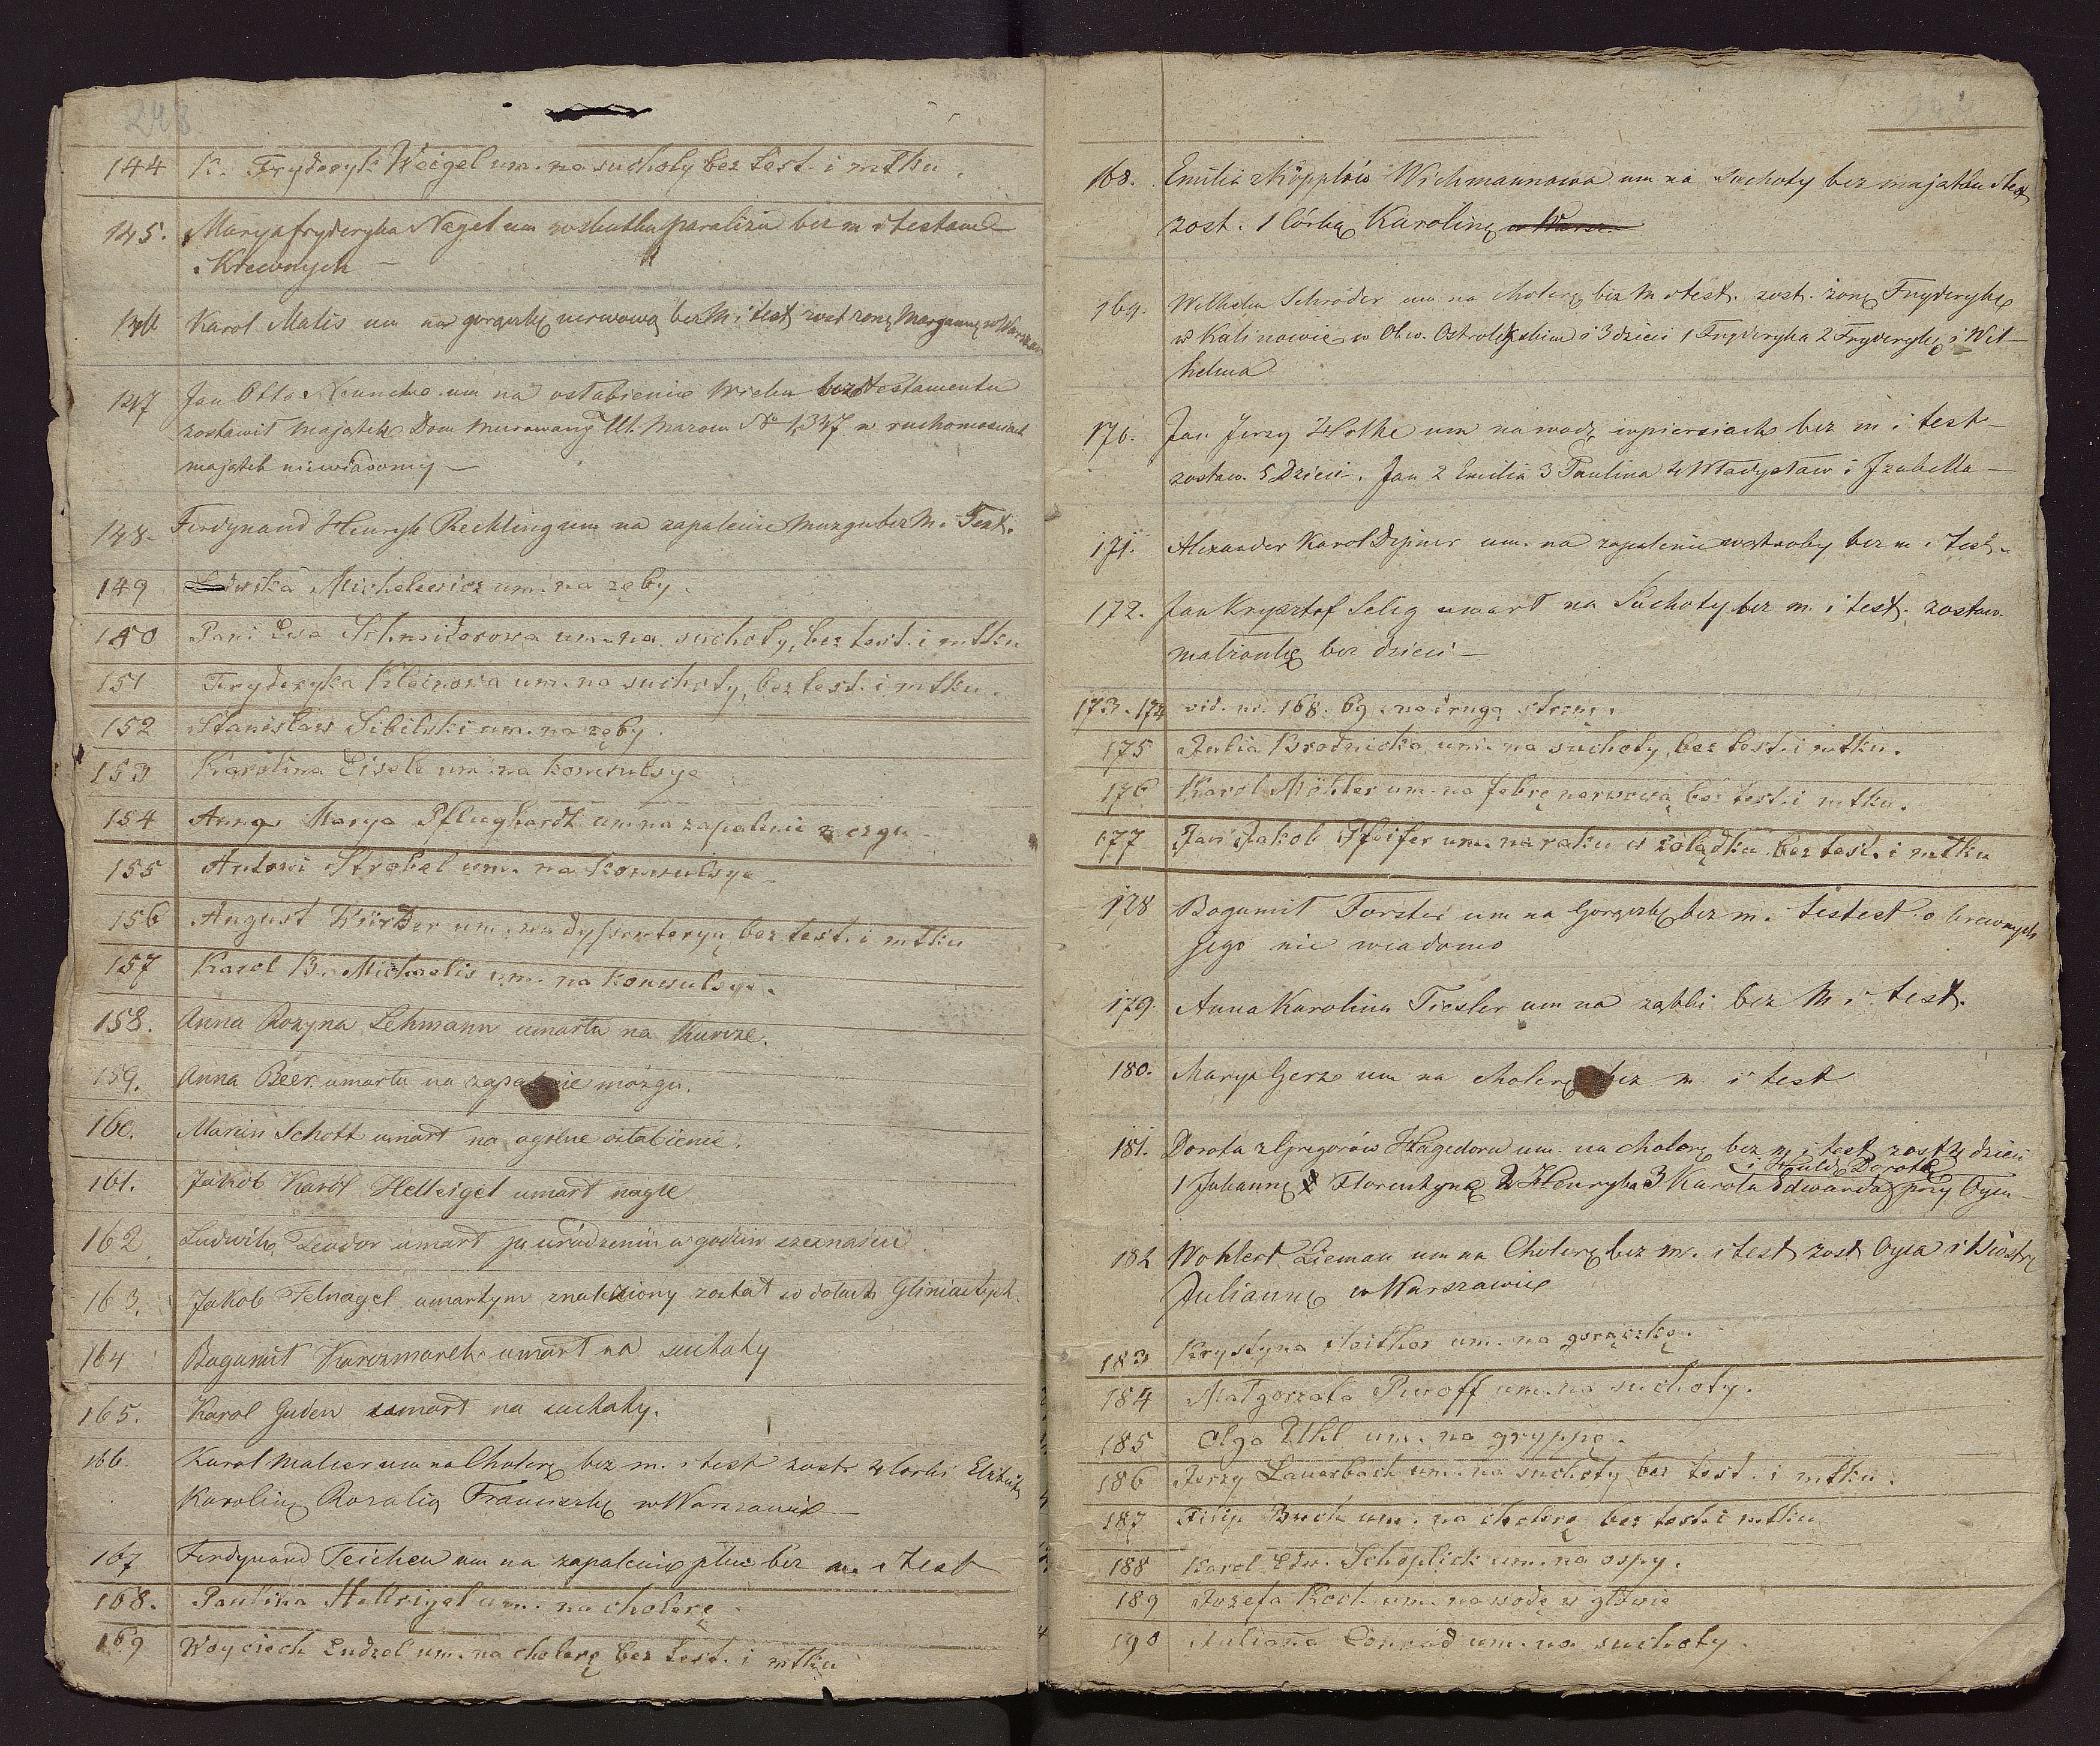 248
144 K. Fryderyk Weigel um. na suchoty bez test. i mtku.
145. Marya fryderyka Nagel um wskutku paraliżu bez m i testam
i Krewnych —
146 Karol Matis um na gorączkę nerwową bez M i test zost żonę Maryannę w Warszaw
147 Jan Otto um na osłabienie Wieku bez testamentu
zostawił majątek Dom murowany Ul. Mazow No 1347 w ruchomościach
majątek niewiadomy —
148. Ferdynand Henryk Rechling um na zapalenie muzgu bez M. Test.
149 Michelewicz um. na zęby.
150 Pani Ewa Schneiderowa um. na suchoty, bez test. i mtku
151 Fryderyka Kleinowa um. na suchoty, bez test. i mtku.
152 Stanisław Sibilski um. na zęby.
153 Karolina Eisele um. na konwulsye
154 Anna Marya Pflughardt um. na zapalenie mozgu.
155 Antoni Strobel um. na konwulsye.
156 August Würder um. na dyssenteryą bez test. i mtku
157 Karol B. Michaelis um. na konwulsye.
158. Anna Rozyna Lehmann umarła na kurcze.
159. Anna Beer umarła na zapalenie mózgu.
160. Marcin Schott umarł na ogólne osłabienie.
161. Jakób Karol Hellrigel umarł nagle
162. Ludwik Teodor umarł po urodzeniu w godzin szesnaście.
163. Jakob Felnagel umarłym znaleziony został w dołach Gliniastych.
164 Bogumił Karczmarek umarł na suchoty
165. Karol Guden umarł na suchoty.
166. Karol Maber um na Cholerę bez m. i test zost. 4 Corki Elżbietę
Karolinę Rozalią Franciszkę w Warszawie
167 Ferdynand Teichen um na zapalenie płuc bez m. i test
168. Paulina Hellrigel um. na cholerę
169 Woyciech Endzel um. na cholerę bez test. i mtku
168. Emilia z Köpplów Wichmannowa um na Suchoty bez majątku i test
zost. 1 Córkę Karolinę w Warsz.
169. Wilhelm Schröder um na cholerę bez M i test. zost. żonę Fryderykę
w Kalinowie w Obw. Ostrołęckim i 3 dzieci 1 Fryderyka 2 Fryderykę i Wil-
helma
170. Jan Jerzy Hothe um na wodę w piersiach bez m i test —
zostaw. 5 Dzieci. Jan 2 Emilia 3 Paulina 4 Władysław i Izabella —
171. Alexander Karol um. na zapalenie wątroby bez m i test.
172. Jan Krysztof Selig umarł na Suchoty bez m. i test. zostaw.
małżonkę bez dzieci —
173. 174 vid. nr. 168. 69 na drugą stronę.
175 Julia Brodnicka um. na suchoty, bez test. i mtku.
176 Karol Möhler um. na febrę nerwową bez test. i mtku.
177 Jan Jakob Pfeifer um. na raka w żołądku bez test. i mtku
178 Bogumił Forster um na Gorączkę bez m. i testest. o krewnych
jego nie wiadomo
179. Anna Karolina Tiesler um na ząbki bez M i test.
180. Marya Gerz um na cholerę bez m. i test
181. Dorota z Gregorów Hagedorn um. na cholerę bez m i test zost 4 dzieci
i Huldę Dorotę
1 Juliannę Florentynę 2 Henryka 3 Karola Edwarda przy Oycu —
182 Wohlert Zieman um na Cholerę bez m. i test zost Oyca i Siostrę
Juliannę w Warszawie
183 Krystyna um. na gorączkę.
184 Małgorzata Puroff um. na suchoty.
185 Olga Uhl um. na gryppę.
186 Jerzy Lauerbach um. na suchoty bez test. i mtku.
187 Filip Buch um. na cholerę bez test. i mtku
188 Karol Edw. Schoplick um. na ospy.
189 Jozefa Koch um. na wodę w głowie
190 Juliana Conrad um. na suchoty.